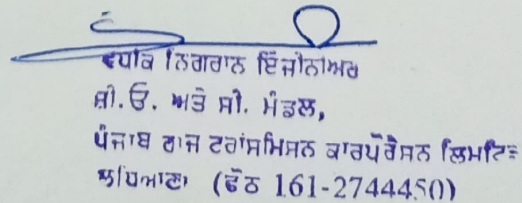 ਵਧੀਕ ਨਿਗਰਾਨ ਇੰਜੀਨੀਅਰ
ਸੀ.ਓ. ਅਤੇ ਸੀ. ਮੰਡਲ,
ਪੰਜਾਬ ਰਾਜ ਟਰਾਂਸਮਿਸਨ ਕਾਰਪੋਰੈਸਨ ਲਿਮਟਿਡ
ਲੁਧਿਆਣਾ (ਫੋਨ 161-2744450)